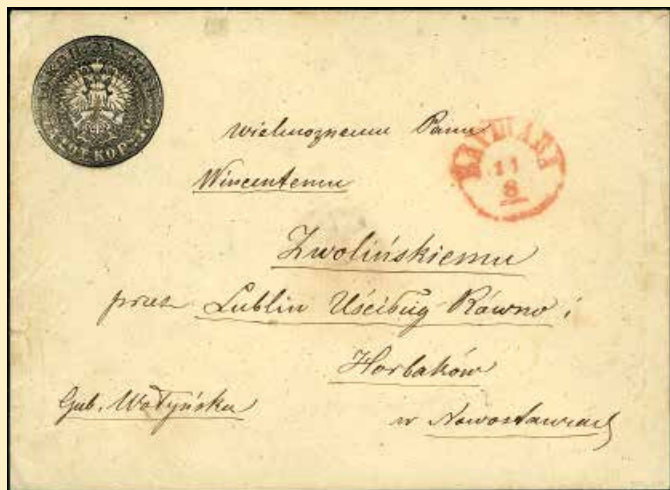 wielmożnemu Panu
Wincentemu
Zwolińskiemu
11
8
przez Lublin Uściług Równo i
Horbaków
Gub. Wołyńska
w Nowostawcach